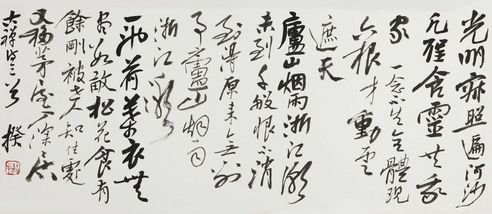 光明寂照遍河沙
凡聖含靈共我
家一念不生全體現
六根才動雲
遮天
廬山烟雨浙江潮
未到千般恨不消
到得原来無别
事廬山烟雨
浙江潮
一池荷葉衣無
盡數畝松花食有
餘剛被世人知住處
又移茅屋入深居
禅詩三首 揆